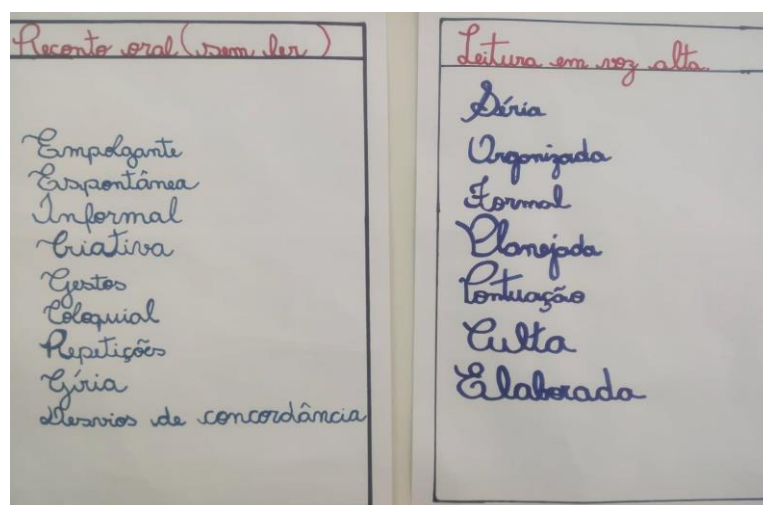 Reconto oral (sem ler)
Empolgante
Espontânea
Informal
Criativa
Gestos
Coloquial
Repetições
Gíria
Desvios de concordância
Leitura em voz alta.
Séria
Organizada
Formal
Planejada
Pontuação
Culta
Elaborada